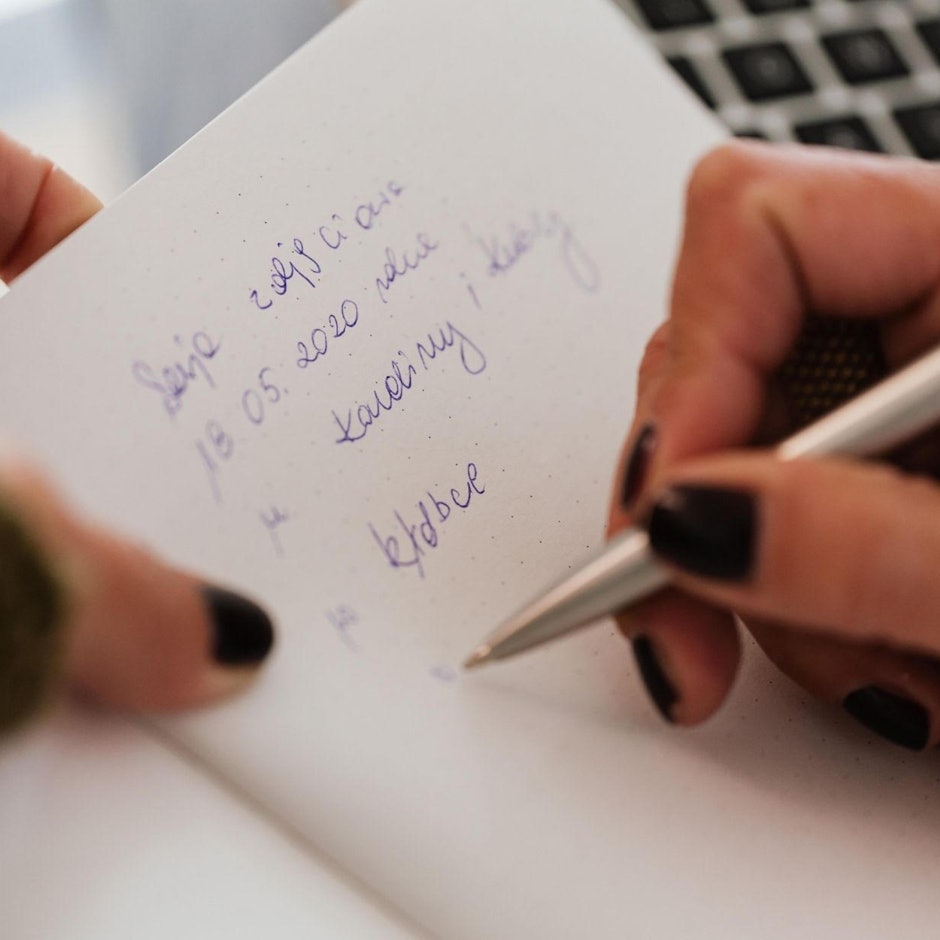 Sesja zdjęciowa
18.05.2020 roku
u Karoliny i Kuby
u